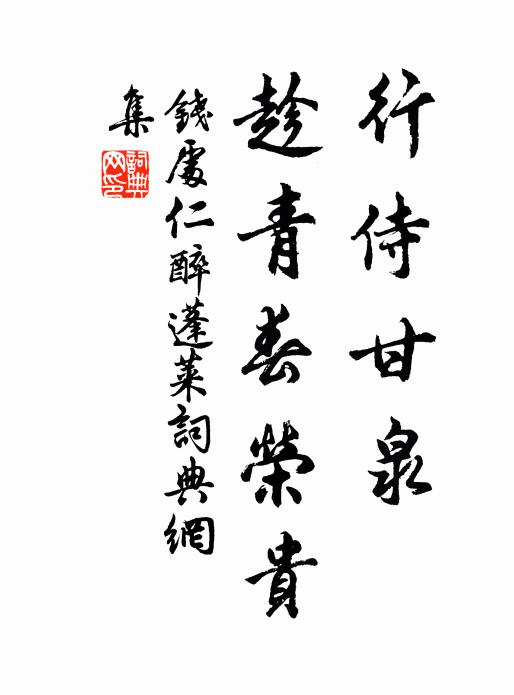 行侍甘泉
趁青春榮貴
錢處仁醉蓬萊詞典網
集
詞典
网印